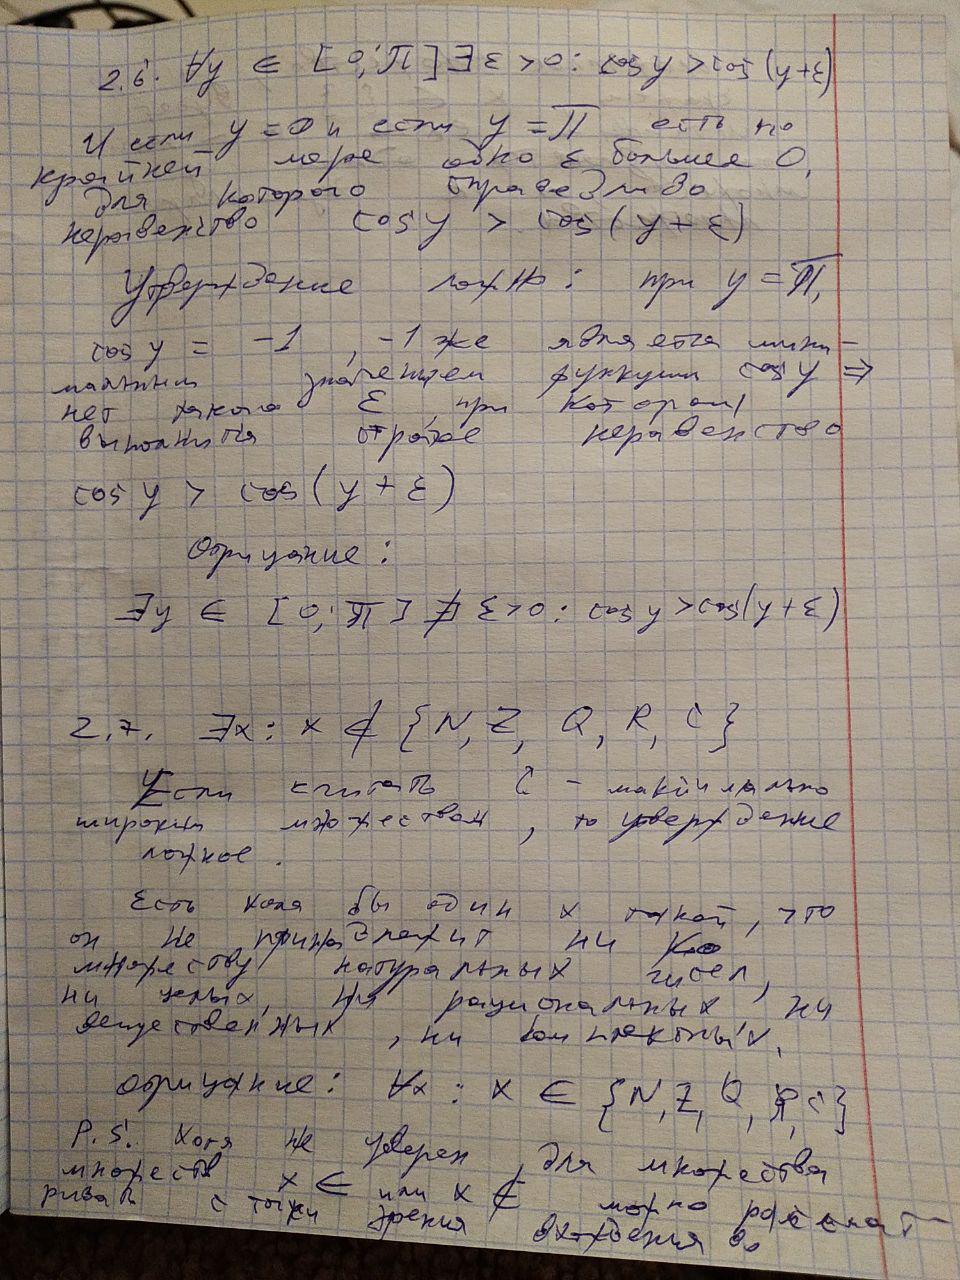 2.6. ∀y ∈ [0; П] ∃ ε > 0 : cos y > cos (y+ε)
И если y = 0 и если y = П есть по
крайней мере одно ε больше 0,
для которого справедливо
неравенство cos y > cos (y+ε)
Утверждение ложно: при y = П,
cos y = -1, -1 же является мини-
мальным значением функции cos y ⇒
нет такого ε, при котором
выполнится строгое неравенство
cos y > cos (y + ε)
Отрицание:
∃y ∈ [0; П] ∄ ε > 0 : cos y > cos (y+ε)
2.7. ∃x : x ∉ {N, Z, Q, R, C}
Если считать C - максимально
широким множеством, то утверждение
ложное.
Есть хотя бы один x такой, что
он не принадлежит ни
множеству натуральных чисел,
ни целых, ни рациональных, ни
вещественных, ни комплексных.
отрицание: ∀x : x ∈ {N, Z, Q, R, C}
P.S. Хотя не уверен, для множества
множеств x ∈ или x ∉ можно рассмат-
ривать с точки зрения вхождения во